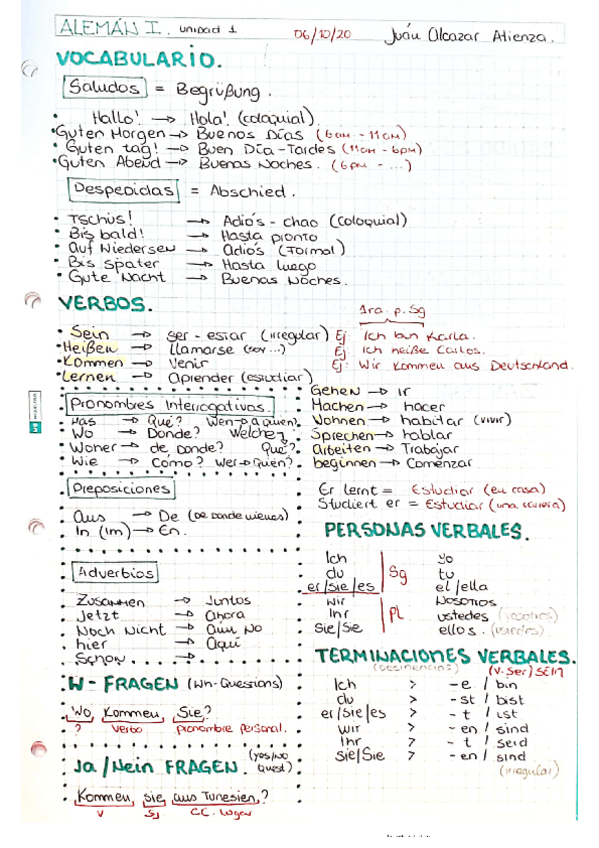 ALEMÁN I. unidad 1 06/10/20 Juan Alcazar Atienza.
VOCABULARIO.
Saludos = Begrüßung.
Hallo! → Hola! (coloquial)
Guten Morgen → Buenos Días (6am - 11am)
Guten tag! → Buen Día-Tardes (11am - 6pm)
Guten Abend → Buenas Noches. (6pm - ...)
Despedidas = Abschied.
Tschüs! → Adiós - chao (coloquial)
Bis bald! → Hasta pronto
Auf Wiedersen → Adiós (Formal)
Bis später → Hasta luego
Gute Nacht → Buenas Noches.
VERBOS.
1ra. p. Sg
Sein → ser - estar (irregular) Ej Ich bin Karla.
Heißen → llamarse (soy...) Ej Ich heiße Carlos.
Kommen → venir Ej: Wir kommen aus Deutschland.
Lernen → aprender (estudiar)
Gehen → ir
Machen → hacer
Wohnen → habitar (vivir)
Sprechen → hablar
arbeiten → Trabajar
beginnen → Comenzar
Er lernt = Estudiar (en casa)
Studiert er = Estudiar (una carrera)
Pronombres Interrogativos.
Was → Qué? Wen → a quien?
Wo → Donde? Welche
Woher → de donde? Qué?
Wie → Cómo? Wer → Quién?
Preposiciones
Aus → De (De donde vienes)
In (Im) → En.
Adverbios
Zusammen → Juntos
Jetzt → ahora
Noch Nicht → Aun No
hier → Aquí
Schon →
W - FRAGEN (Wh-Questions)
Wo, Kommen, Sie?
? Verbo pronombre personal.
Ja / Nein FRAGEN. (yes/no Quest)
Kommen, sie, aus Tunesien,?
V Sj CC. Lugar
PERSONAS VERBALES.
Ich yo
du tu
er/sie/es Sg el/ella
Wir Nosotros
Ihr PL ustedes (vosotros)
Sie/Sie ellos. (ustedes)
TERMINACIONES VERBALES.
(desinencias) (v. ser) SEIN
Ich > -e / bin
du > -st / bist
er/sie/es > -t / ist
wir > -en / sind
Ihr > -t / seid
sie/Sie > -en / sind
(irregular)